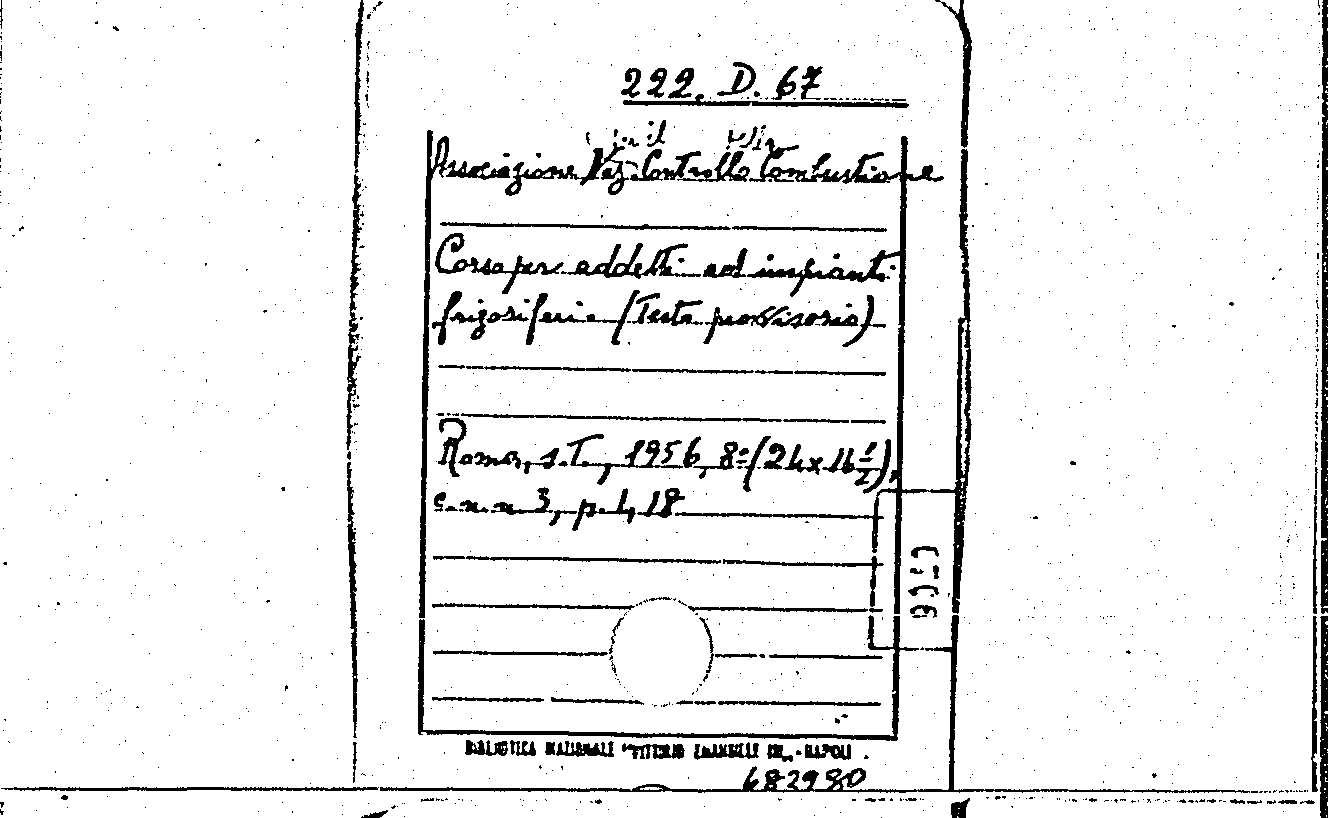 222. D. 67
per il della
Associazione Naz. Controllo Combustione
Corso per addetti ad impianti
frigoriferi. (Testo provvisorio)
Roma, s.T., 1956, 8º (24x16½),
c.n.n. 3, p. 1, 18
BIBLIOTECA NAZIONALE "VITTORIO EMANUELE III" - NAPOLI
682980